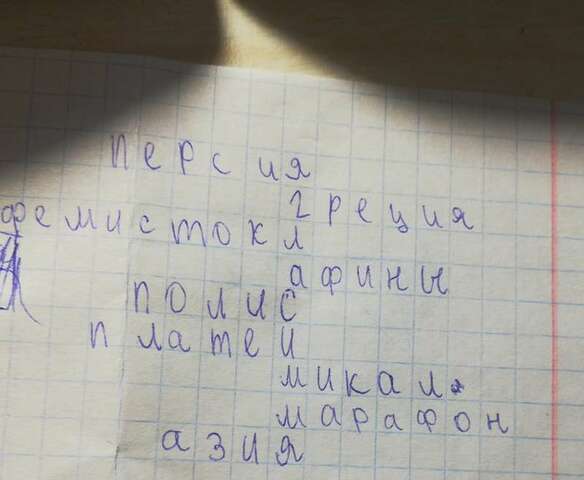 персия
греция
фемистокл
афины
полис
платеи
микал
марафон
азия